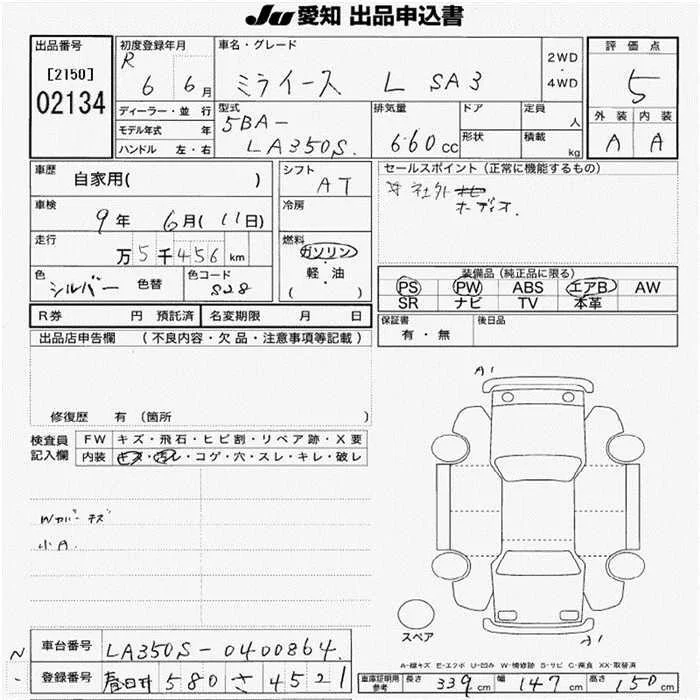 JU 愛知 出品申込書
出品番号
[2150]
02134
初度登録年月
R 6 6月
車名・グレード
ミライース L SA3
2WD
・
4WD
評価点
5
外装 内装
A A
ディーラー・並行
モデル年式 年
ハンドル 左・右
型式
5BA-
LA350S.
排気量
660cc
ドア
形状
定員
人
積載
kg
車歴
自家用( )
車検
9年 6月(11日)
走行
万5千456km
色
シルバー 色替
色コード
S28
シフト
AT
冷房
燃料
ガソリン
軽・油
( )
セールスポイント(正常に機能するもの)
社外
オーディオ.
装備品(純正品に限る)
PS PW ABS エアB. AW
SR ナビ TV 本革
R券 円 預託済 名変期限 月 日
保証書
有・無
後日品
出品店申告欄 (不良内容・欠品・注意事項等記載)
修復歴 有(箇所 )
検査員
記入欄
FW キズ・飛石・ヒビ割・リペア跡・X要
内装 キズ・汚レ・コゲ・穴・スレ・キレ・破レ
Wカバーキズ
小A.
A1
スペア
A1
車台番号 LA350S-0400864.
登録番号 春日井 580 さ 4521
A-線キズ E-エクボ U-凹み W-補修跡 S-サビ C-腐食 XX-取替済
車庫証明用
参考
長さ 339cm 幅 147cm 高さ 150cm